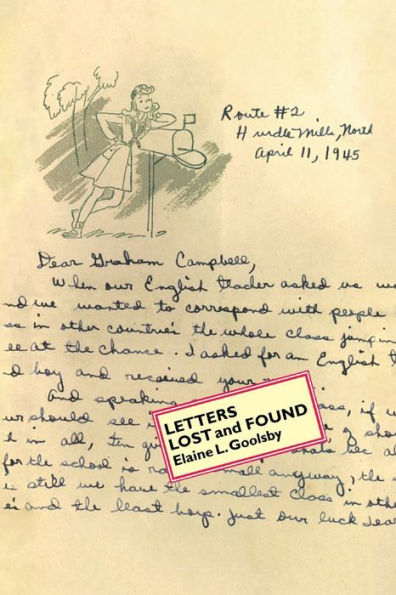 Route #2
Hurdle Mills, North
April 11, 1945
Dear Graham Campbell,
When our English teacher asked us
nd we wanted to correspond with people
ss in other countries the whole class jumpin
ee at the chance.. I asked for an English
d boy and received your
And speaking ss, if
ur should see
t in all, ten
for the school is small anyway, the
e still we have the smallest class in othe
es and the least boys. Just our luck Dear
LETTERS
LOST and FOUND
Elaine L. Goolsby